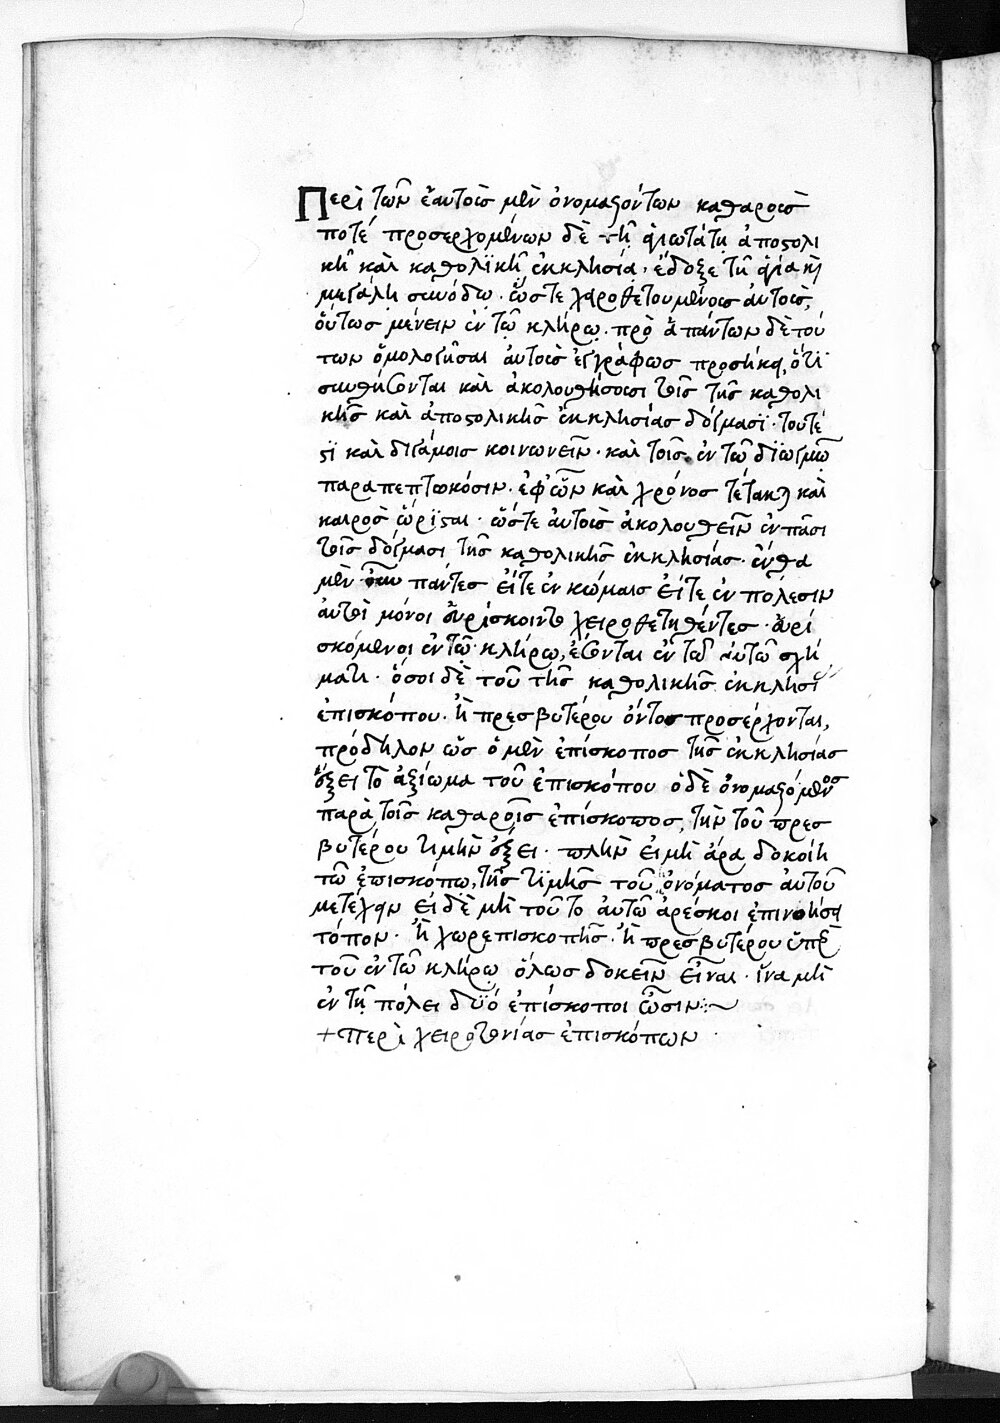 Περὶ τῶν ἑαυτοῖς μὲν ὀνομαζόντων καθαροῖς
ποτέ προσερχομένων δὲ τῇ ἁγιωτάτῃ ἀποστολι
κῇ καὶ καθολϊκῇ ἐκκλησίᾳ· ἔδοξε τῇ ἁγίᾳ κὶ
μεγάλη συνόδω· ὥστε χειροθετουμένοις αὐτοῖς,
οὕτως μένειν ἐν τῷ κλήρῳ· πρὸ ἁπάντων δὲ τού
των ὁμολογῆσαι αὐτοῖς ἐγγράφως προσήκει, ὅτϊ
συνθήσονται καὶ ἀκολουθήσουσι τοῖς τῆς καθολι
κῆς καὶ ἀποστολικῆς ἐκκλησίας δόγμασϊ· τουτέ
στι καὶ διγάμοις κοινωνεῖν· καὶ τοῖς ἐν τῶ διωγμῶ
παραπεπτωκόσιν· ἐφ' ὧν καὶ χρόνος τέτακται καὶ
καιρὸς ὥρϊσται· ὥστε αὐτοῖς ἀκολουθεῖν ἐν πᾶσι
τοῖς δόγμασι τῆς καθολικῆς ἐκκλησίας· ἔνθα
μὲν οὖν πάντες εἴτε ἐν κώμαις εἴτε ἐν πόλεσιν
αὐτοὶ μόνοι εὑρίσκοιντο χειροθετηθέντες· εὑρι
σκόμενοι ἐν τῶ κλήρω, ἔσονται ἐν τῶ αὐτῶ σχή
ματι· ὅσοι δὲ τοῦ τῆς καθολικῆς ἐκκλησί
ἐπισκόπου· ἢ πρεσβυτέρου ὄντος προσέρχονται,
πρόδηλον ὡς ὁ μὲν ἐπίσκοπος τῆς ἐκκλησίας
ἕξει τὸ ἀξίωμα τοῦ ἐπισκόπου ὁ δὲ ὀνομαζόμενος
παρὰ τοῖς καθαροῖς ἐπίσκοπος, τὴν τοῦ πρεσ
βυτέρου τιμὴν ἕξει· πλὴν εἰ μὴ ἄρα δοκοίη
τῶ ἐπισκόπω, τῆς τϊμῆς τοῦ ὀνόματος αὐτοῦ
μετέχειν εἰ δὲ μὴ τοῦτο αὐτῶ ἀρέσκοι ἐπινοήσει
τόπον· ἢ χωρεπισκοπῆς· ἢ πρεσβυτέρου ὑπὲρ
τοῦ ἐν τῶ κλήρῳ ὅλως δοκεῖν εἶναι· ἵνα μὴ
ἐν τῇ πόλει δϋό ἐπίσκοποι ὦσιν :~
+ Περὶ χειροτονίας ἐπισκόπων